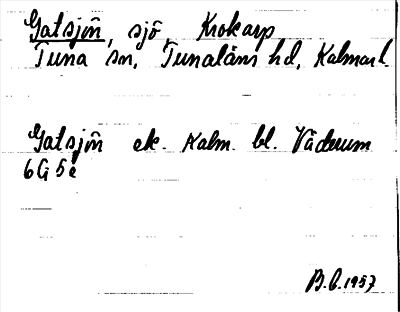 Gatsjön, sjö, Krokarp
Tuna sn, Tunaläns hd, Kalmar l.
Gatsjön ek. Kalm. bl. Väderum
6G 5e
B.C. 1957